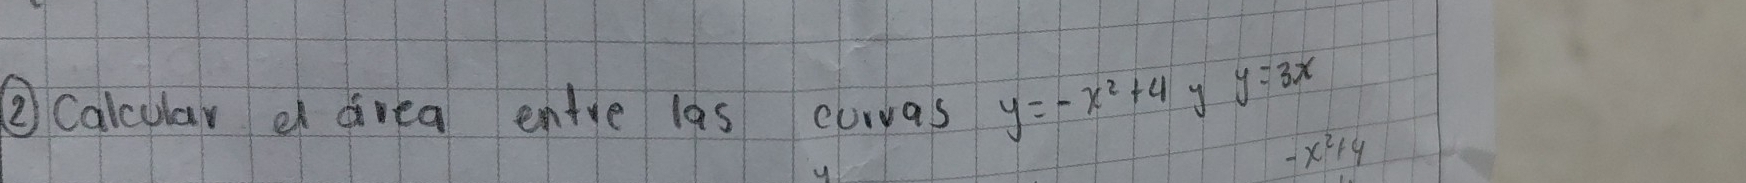 ② Calcular el área entre las curvas y = -x² + 4 y y = 3x
-x² + 4
y